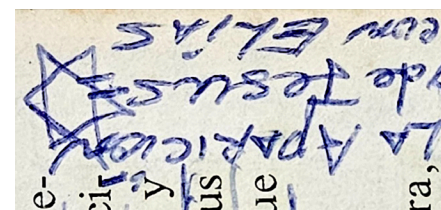 LA APARICION
de JESUS
con ELIAS
e-
y
us
ue
ra,